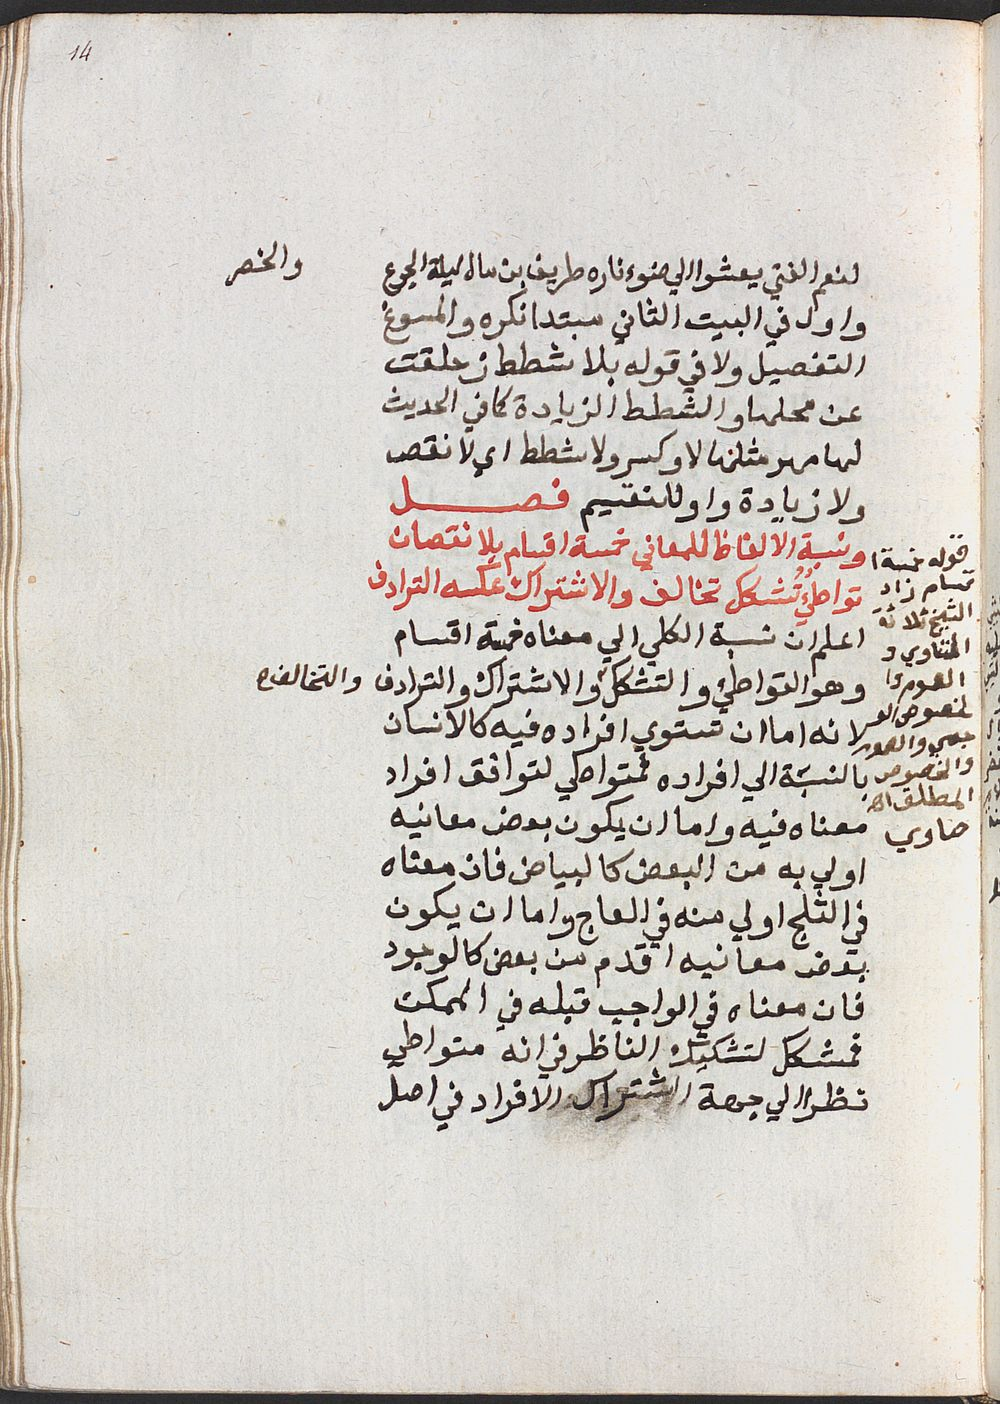 14
لنعم الفتي يعشوا الي ضوء ناره طريف بن مال ليلة الجوع
والخصر
واول في البيت الثاني مبتدا نكره والمسوغ
التفصيل ولا في قوله بلا شطط زحلقت
عن محلها والشطط الزيادة كما في الحديث
لها مهر مثلها لا وكس ولا شطط اي لا نقص
ولا زيادة واو للتقسيم فصل
ونسبة الالفاظ للمعاني خمسة اقسام بلا نقصان
تواطؤ تشكك تخالف والاشتراك عكسه الترادف
اعلم ان نسبة الكلي الي معناه خمسة اقسام
وهو التواطي والتشكك والاشتراك والترادف والتخالف
لانه اما ان تستوي افراده فيه كالانسان
بالنسبة الي افراده فمتواطي لتوافق افراد
معناه فيه واما ان يكون بعض معانيه
اولي به من البعض كالبياض فان معناه
في الثلج اولي منه في العاج واما ان يكون
بعض معانيه اقدم من بعض كالوجود
فان معناه في الواجب قبله في الممكن
فمشكك لتشكيك الناظر في انه متواطي
نظرا الي جهة اشتراك الافراد في اصل
قوله خمسة ا
قسام زاد
الشيخ ثلاثة
التساوي و
العموم وا
لخصوص الو
جهي والعموم
والخصوص
المطلق اه
صاوي